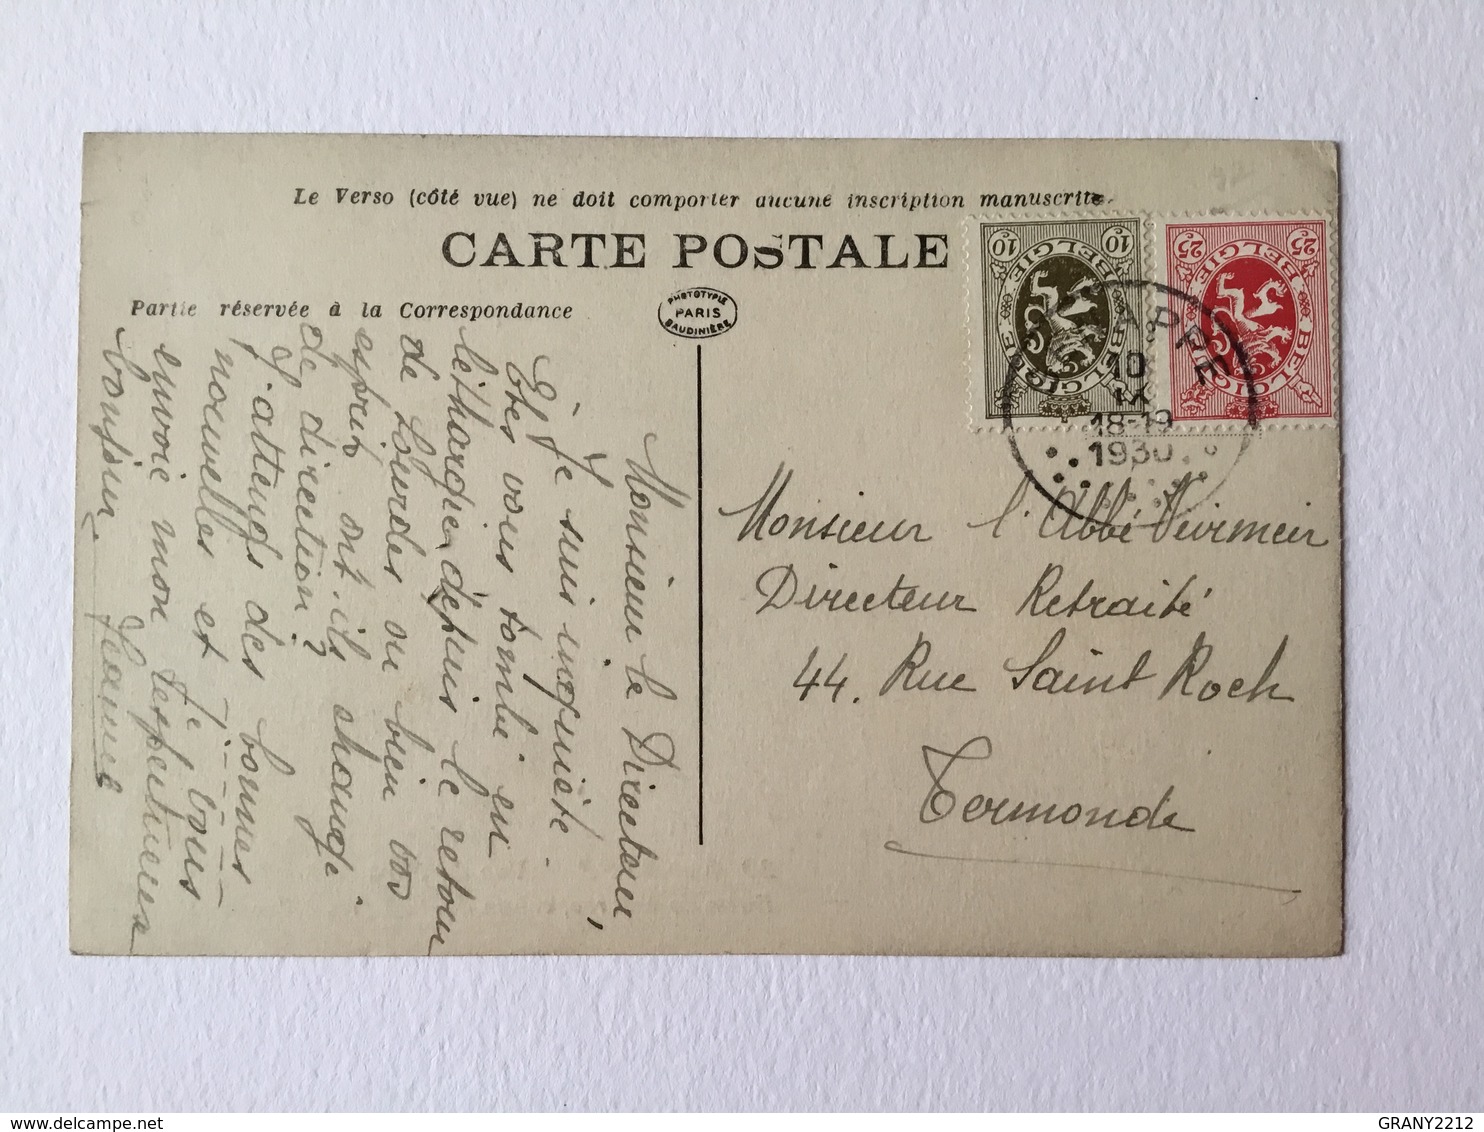 Le Verso (côté vue) ne doit comporter aucune inscription manuscrite.
CARTE POSTALE
Partie réservée à la Correspondance
PHOTOTYPIE
PARIS
BAUDINIÈRE
10c 10c
BELGIE
BELGIQUE
25c 25c
BELGIE
BELGIQUE
10
IX
18-19
1930
Monsieur le Directeur,
Je suis inquiète.
Êtes vous tombé en
léthargie, depuis le retour
de Lourdes ou bien vos
esprits ont-ils changé
de direction?
J'attends des bonnes
nouvelles et Je vous
envoie mon respectueux
bonjour.
Jeanne
Monsieur l'Abbé
Directeur Retraité
44. Rue Saint Roch
Termonde
GRANY2212